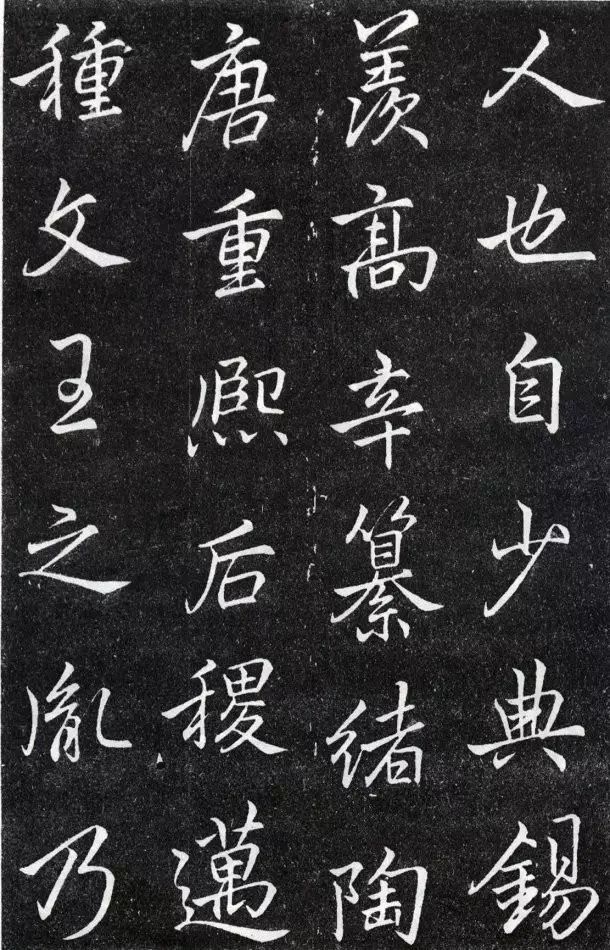 人也自少典錫
羡高辛纂緒陶
唐重熙后稷邁
種文王之胤乃